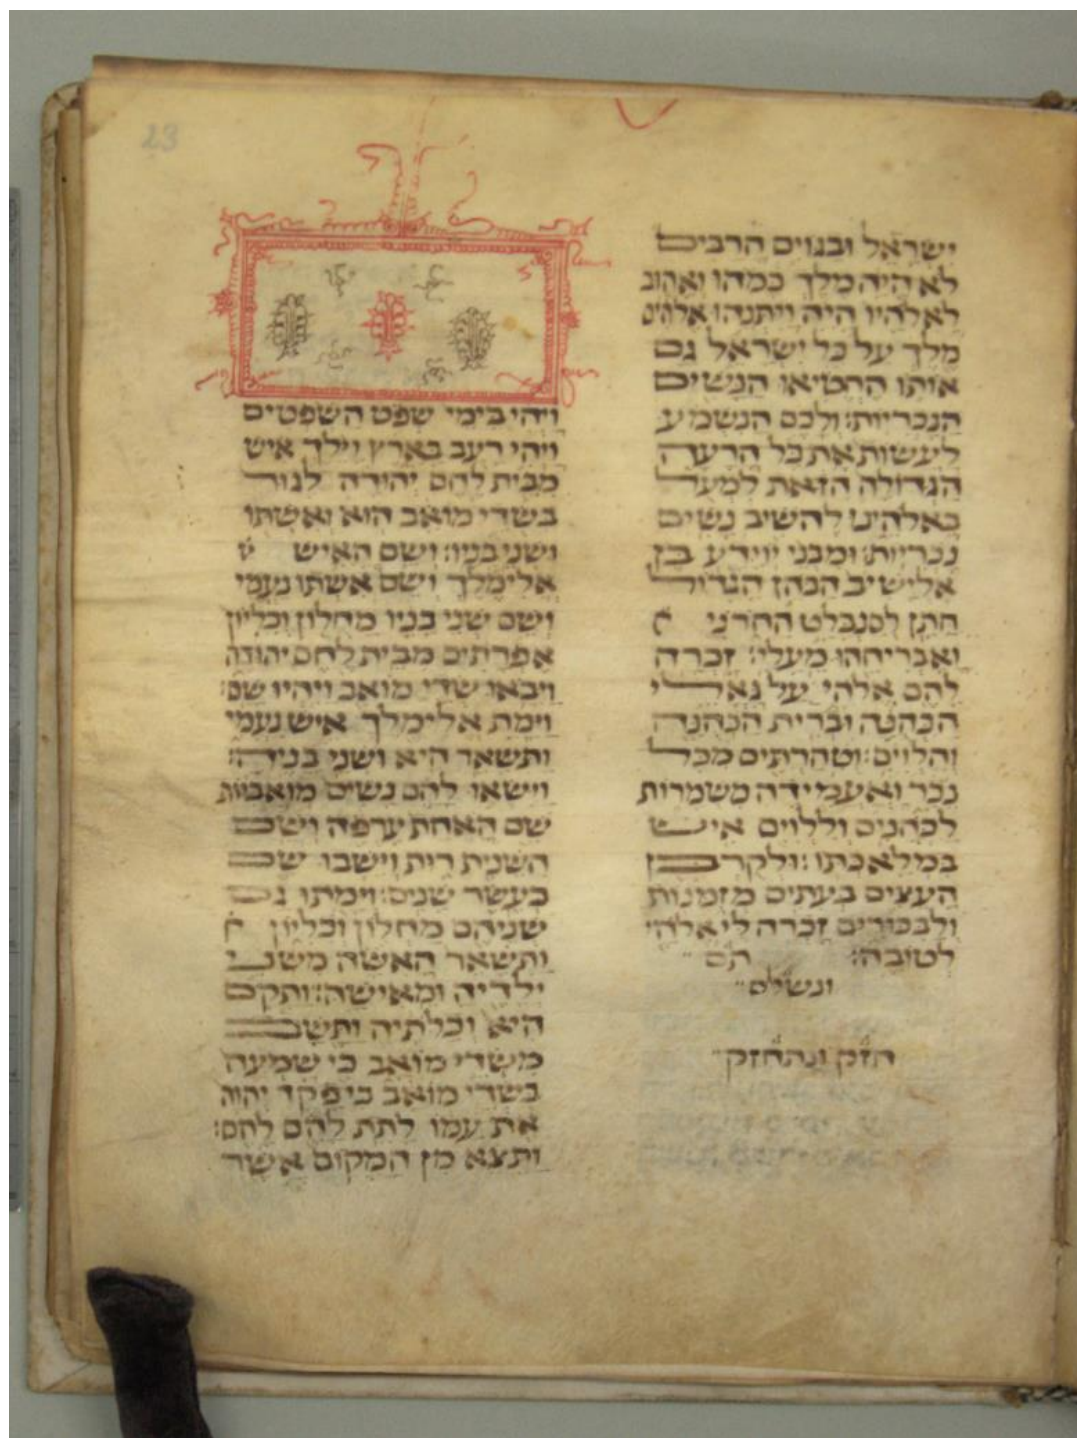 23
ישראל ובגוים הרבים
לא היה מלך כמהו ואהוב
לאלהיו היה ויתנהו אלהים
מלך על כל ישראל גם
אותו החטיאו הנשים
הנכריות׃ ולכם הנשמע
לעשות את כל הרעה
הגדולה הזאת למעל
באלהינו להשיב נשים
נכריות׃ ומבני יוידע בן
אלישיב הכהן הגדול
חתן לסנבלט החרני
ואבריחהו מעלי׃ זכרה
להם אלהי על גאלי
הכהנה וברית הכהנה
והלוים׃ וטהרתים מכל
נכר ואעמידה משמרות
לכהנים וללוים איש
במלאכתו׃ ולקרבן
העצים בעתים מזמנות
ולבכורים זכרה לי אלהי
לטובה׃ תם
ונשלם
חזק ונתחזק
ויהי בימי שפט השפטים
ויהי רעב בארץ וילך איש
מבית לחם יהודה לגור
בשדי מואב הוא ואשתו
ושני בניו׃ ושם האיש
אלימלך ושם אשתו נעמי
ושם שני בניו מחלון וכליון
אפרתים מבית לחם יהודה
ויבאו שדי מואב ויהיו שם׃
וימת אלימלך איש נעמי
ותשאר היא ושני בניה׃
וישאו להם נשים מואביות
שם האחת ערפה ושם
השנית רות וישבו שם
כעשר שנים׃ וימתו גם
שניהם מחלון וכליון
ותשאר האשה משני
ילדיה ומאישה׃ ותקם
היא וכלתיה ותשב
משדי מואב כי שמעה
בשדי מואב כי פקד יהוה
את עמו לתת להם לחם׃
ותצא מן המקום אשר